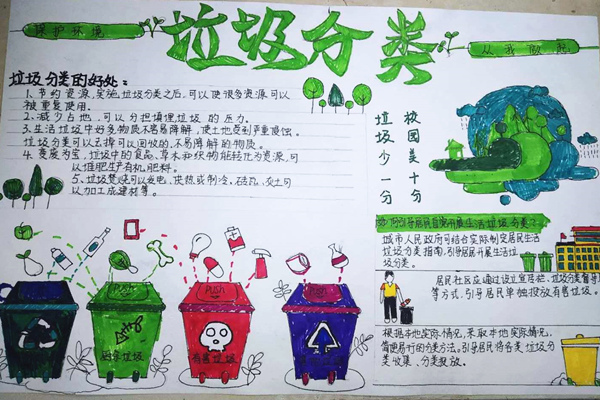 保护环境
垃圾分类
从我做起
垃圾分类的好处:
1、节约资源,实施垃圾分类之后,可以使很多资源可以
被重复使用.
2、减少占地,可以分担填埋垃圾的压力.
3、生活垃圾中好多物质不易降解,使土地受到严重侵蚀.
垃圾分类可以去掉可以回收的,不易降解的物质.
4、变废为宝,垃圾中的食品、草木和织物能转化为资源,可
以堆肥生产有机肥料.
5、垃圾焚烧可以发电、供热或制冷,砖瓦、灰土可
以加工成建材等.
校园美十分
垃圾少一分
如何引导居民自觉开展生活垃圾分类?
城市人民政府可结合实际制定居民生活
垃圾分类指南,引导居民开展生活垃
圾分类.
居民社区应通过设立宣传栏、垃圾分类督导
等方式,引导居民单独投放有害垃圾.
根据本地实际情况,采取本地实际情况,
简便易行的分类方法.引导居民将各类垃圾分
类收集、分类投放.
PUSH
PUSH
厨余垃圾
有害垃圾